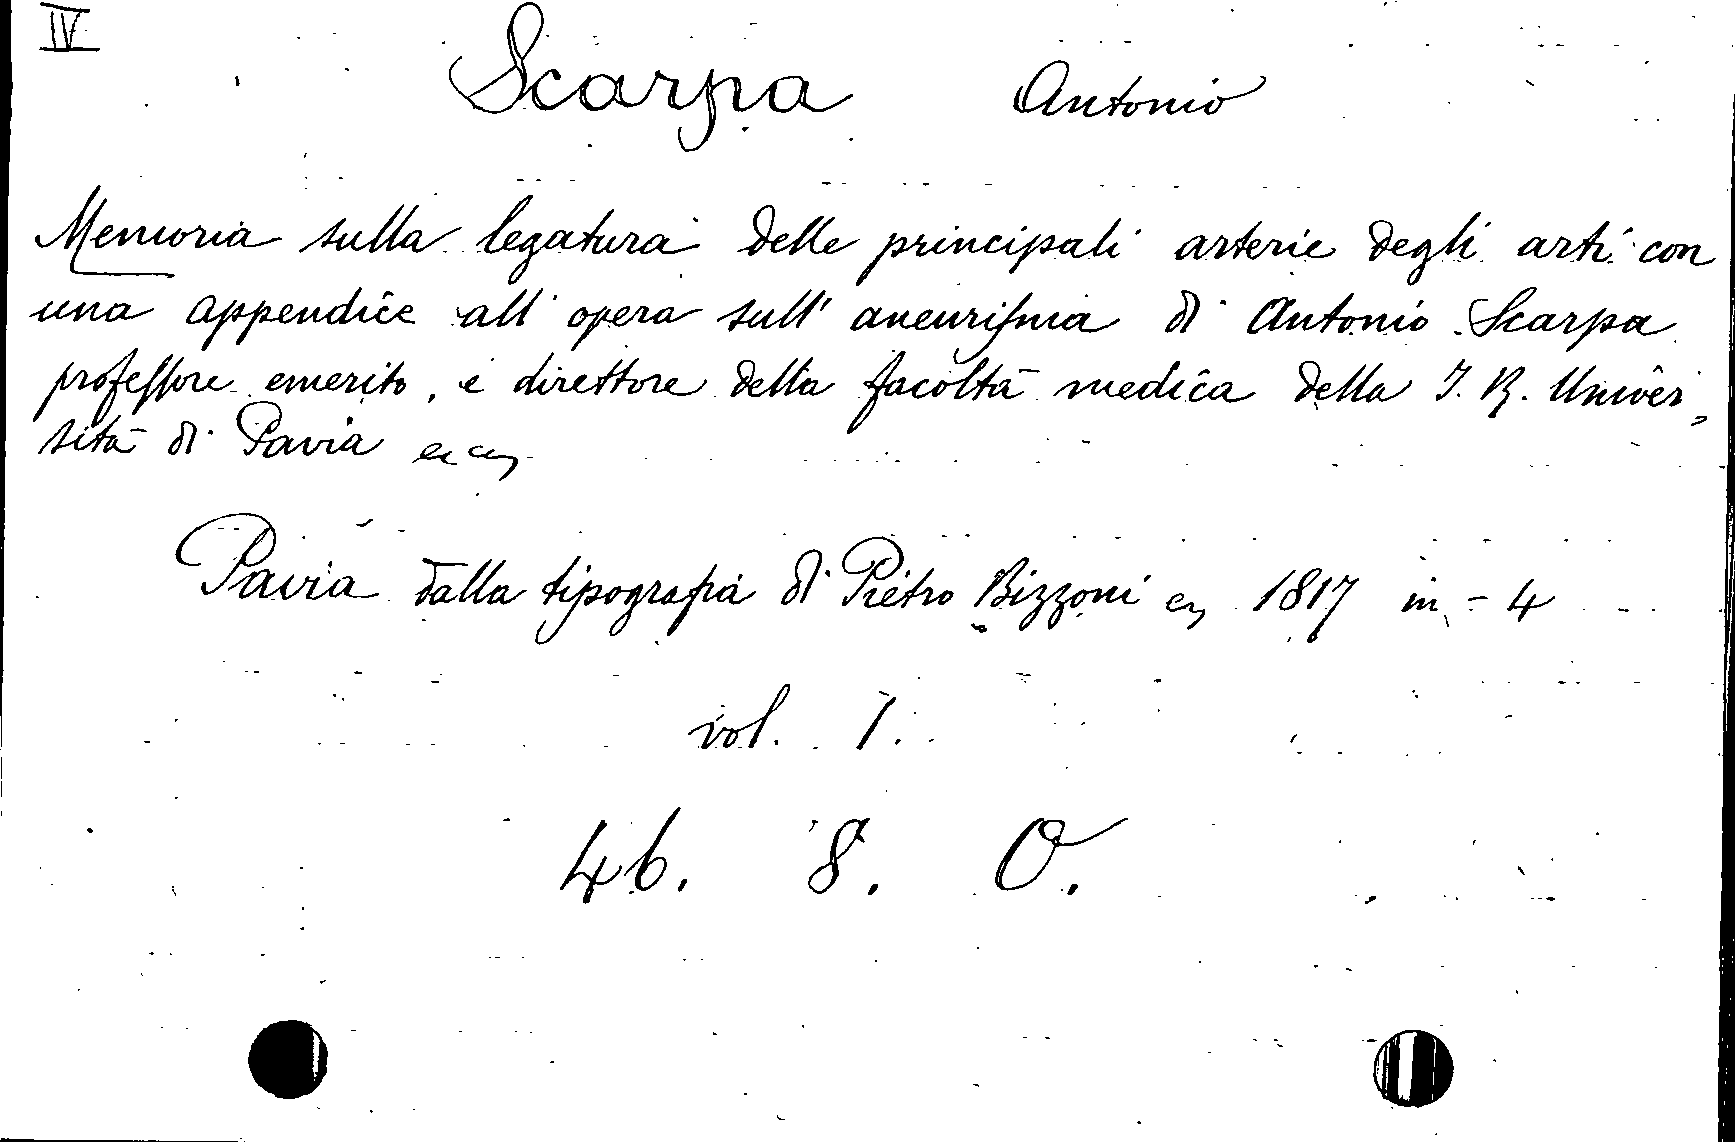 IV
Scarpa Antonio
Memoria sulla legatura delle principali arterie degli arti con
una appendice all' opera sull' aneurisma di Antonio Scarpa
professore emerito, e direttore della facoltà medica della I. R. Univer„
sità di Pavia ec ec
Pavia dalla tipografia di Pietro Bizzoni ec 1817 in - 4
vol. 1.
46. 8. O.